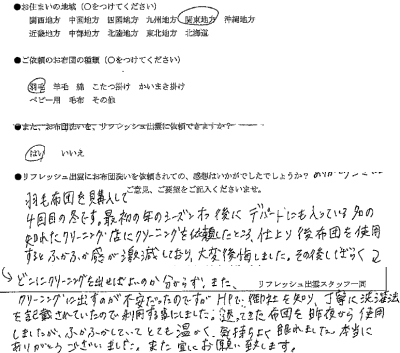 ●お住まいの地域（○をつけてください）
関西地方 中国地方 四国地方 九州地方 関東地方 沖縄地方
近畿地方 中部地方 北陸地方 東北地方 北海道
●ご依頼のお布団の種類（○をつけてください）
羽毛 羊毛 綿 こたつ掛け かいまき掛け
ベビー用 毛布 その他
●また、お布団洗いを、リフレッシュ出雲に依頼できますか？
はい いいえ
●リフレッシュ出雲にお布団洗いを依頼されての、感想はいかがでしたでしょうか？
ご意見、ご要望をご記入くださいませ。
羽毛布団を購入して
4回目の冬です。最初の年のシーズンオフ後に デパートにも入っている 名の
知れたクリーニング店にクリーニングを依頼したところ、仕上り後布団を使用
するとふかふか感が激減しており、大変後悔しました。その後しばらく
どこにクリーニングを出せばよいのか分からず、また、
リフレッシュ出雲スタッフ一同
クリーニングに出すのが不安だったのですが HPで 御社を知り、丁寧に洗濯法
を記載されていたので利用する事にしました。送ってきた布団を昨夜から使用
しましたが、ふかふかしていてとても温かく、気持ちよく眠れました。本当に
ありがとうございました。また宜しくお願い致します。